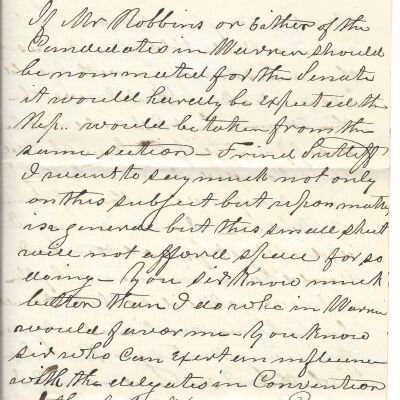 If Mr Robbins or Either of the
Candidates in Warren should
be nominated for the Senate
it would hardly be Expected the
Rep.. would be taken from the
same section – Frind Sutliff
I want to say much not only
on this subject but upon matters
in general but this small sheet
will not afford space for so
doing – You sir Know much
better than I do who in Warren
would favor me – You Know
sir who Can Exert an influence
with the delegates in Convention